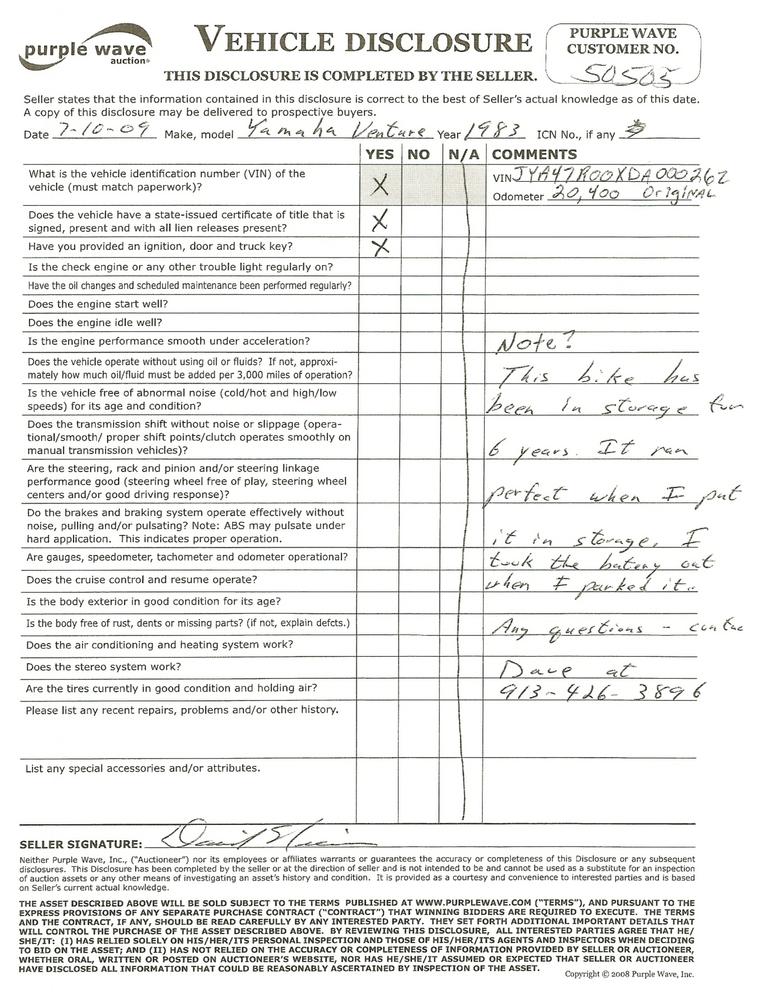 purple wave
auction
VEHICLE DISCLOSURE
PURPLE WAVE
CUSTOMER NO.
50505
THIS DISCLOSURE IS COMPLETED BY THE SELLER.
Seller states that the information contained in this disclosure is correct to the best of Seller's actual knowledge as of this date.
A copy of this disclosure may be delivered to prospective buyers.
Date 7-10-09 Make, model Yamaha Venture Year 1983 ICN No., if any
YES NO N/A COMMENTS
What is the vehicle identification number (VIN) of the
vehicle (must match paperwork)?
X
VIN JYA47R00XDA000262
Odometer 20,400 Original
Does the vehicle have a state-issued certificate of title that is
signed, present and with all lien releases present?
X
Have you provided an ignition, door and truck key? X
Is the check engine or any other trouble light regularly on?
Have the oil changes and scheduled maintenance been performed regularly?
Does the engine start well?
Does the engine idle well?
Is the engine performance smooth under acceleration? Note?
Does the vehicle operate without using oil or fluids? If not, approxi-
mately how much oil/fluid must be added per 3,000 miles of operation?
This bike has
Is the vehicle free of abnormal noise (cold/hot and high/low
speeds) for its age and condition?
been in storage for
Does the transmission shift without noise or slippage (opera-
tional/smooth/ proper shift points/clutch operates smoothly on
manual transmission vehicles)?
6 years. It ran
Are the steering, rack and pinion and/or steering linkage
performance good (steering wheel free of play, steering wheel
centers and/or good driving response)?
perfect when I put
Do the brakes and braking system operate effectively without
noise, pulling and/or pulsating? Note: ABS may pulsate under
hard application. This indicates proper operation.
it in storage, I
Are gauges, speedometer, tachometer and odometer operational? took the battery out
Does the cruise control and resume operate? when I parked it..
Is the body exterior in good condition for its age?
Is the body free of rust, dents or missing parts? (if not, explain defcts.) Any questions - contac
Does the air conditioning and heating system work?
Does the stereo system work? Dave at
Are the tires currently in good condition and holding air? 913-426-3896
Please list any recent repairs, problems and/or other history.
List any special accessories and/or attributes.
SELLER SIGNATURE: David
Neither Purple Wave, Inc., ("Auctioneer") nor its employees or affiliates warrants or guarantees the accuracy or completeness of this Disclosure or any subsequent
disclosures. This Disclosure has been completed by the seller or at the direction of seller and is not intended to be and cannot be used as a substitute for an inspection
of auction assets or any other means of investigating an asset's history and condition. It is provided as a courtesy and convenience to interested parties and is based
on Seller's current actual knowledge.
THE ASSET DESCRIBED ABOVE WILL BE SOLD SUBJECT TO THE TERMS PUBLISHED AT WWW.PURPLEWAVE.COM ("TERMS"), AND PURSUANT TO THE
EXPRESS PROVISIONS OF ANY SEPARATE PURCHASE CONTRACT ("CONTRACT") THAT WINNING BIDDERS ARE REQUIRED TO EXECUTE. THE TERMS
AND THE CONTRACT, IF ANY, SHOULD BE READ CAREFULLY BY ANY INTERESTED PARTY. THEY SET FORTH ADDITIONAL IMPORTANT DETAILS THAT
WILL CONTROL THE PURCHASE OF THE ASSET DESCRIBED ABOVE. BY REVIEWING THIS DISCLOSURE, ALL INTERESTED PARTIES AGREE THAT HE/
SHE/IT: (I) HAS RELIED SOLELY ON HIS/HER/ITS PERSONAL INSPECTION AND THOSE OF HIS/HER/ITS AGENTS AND INSPECTORS WHEN DECIDING
TO BID ON THE ASSET; AND (II) HAS NOT RELIED ON THE ACCURACY OR COMPLETENESS OF INFORMATION PROVIDED BY SELLER OR AUCTIONEER,
WHETHER ORAL, WRITTEN OR POSTED ON AUCTIONEER'S WEBSITE, NOR HAS HE/SHE/IT ASSUMED OR EXPECTED THAT SELLER OR AUCTIONEER
HAVE DISCLOSED ALL INFORMATION THAT COULD BE REASONABLY ASCERTAINED BY INSPECTION OF THE ASSET.
Copyright © 2008 Purple Wave, Inc.